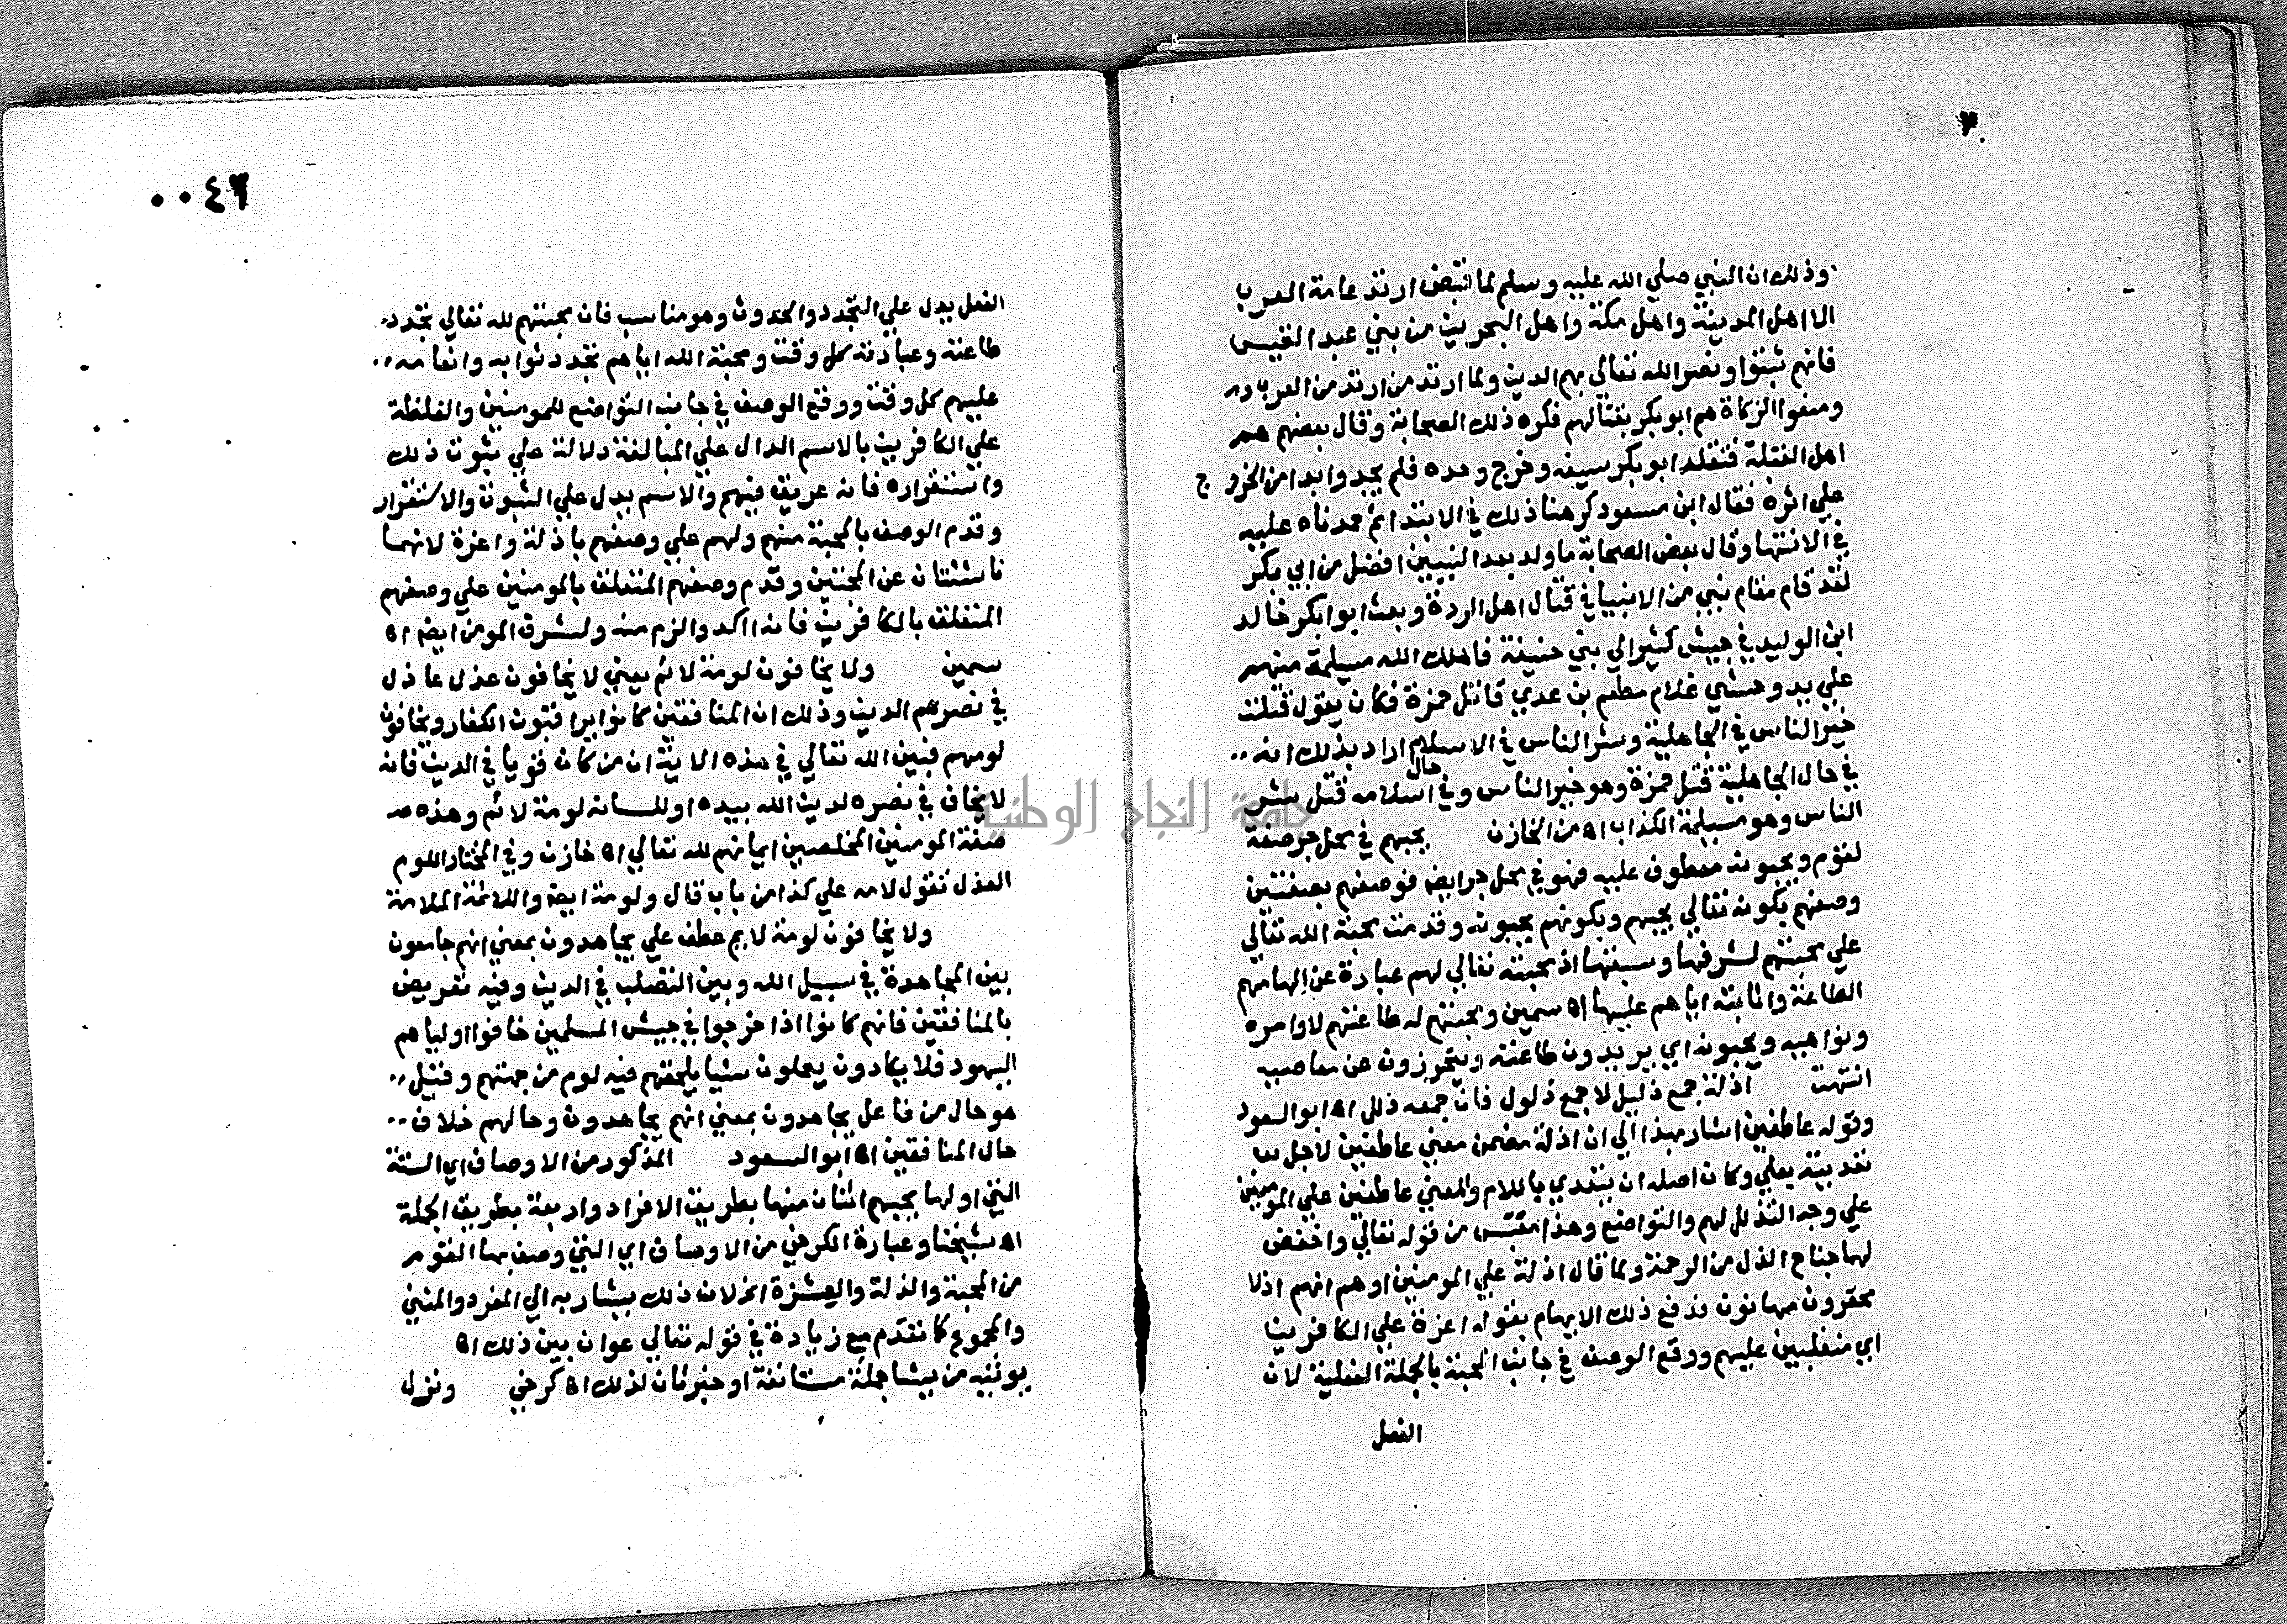 وذلك ان النبي صلي الله عليه وسلم لما قبض ارتد عامة العرب
الا اهل المدينة واهل مكة واهل البحرين من بني عبد القيس
فانهم ثبتوا ونصر الله تعالي بهم الدين ولما ارتد من ارتد من العرب
ومنعوا الزكاة هم ابو بكر بقتالهم فكره ذلك الصحابة وقال بعضهم هم
اهل القبلة فتقلد ابو بكر سيفه وخرج وحده فلم يجدوا بدا من الخروج
علي اثره فقال ابن مسعود كرهنا ذلك في الابتدا ثم حمدناه عليه
في الانتها وقال بعض الصحابة ما ولد بعد النبيين افضل من ابي بكر
لقد قام مقام نبي من الانبيا في قتال اهل الردة وبعث ابوا بكر خالد
ابن الوليد في جيش كثير الي بني حنيفة فاهلك الله مسيلمة منهم
علي يد وحشي غلام مطعم بن عدي قاتل حمزة فكان يقول قتلت
خير الناس في الجاهلية وشر الناس في الاسلام اراد بذلك انه
في حال الجاهلية قتل حمزة وهو خير الناس وفي حال اسلامه قتل شر
الناس وهو مسيلمة الكذاب اه من الخازن يحبهم في محل جر صفة
لقوم ويحبونه معطوف عليه فهو في محل جر ايضا فوصفهم بصفتين
وصفهم بكونه تعالي يحبهم وبكونهم يحبونه وقدمت محبة الله تعالي
علي محبتهم لشرفها وسبقها اذ محبته تعالي لهم عبارة عن الهامهم
الطاعة واثابته اياهم عليها اه سمين ومحبتهم له طاعتهم لاوامره
ونواهيه ويحبونه اي يريدون طاعته ويتحرزون عن معاصيه
انتهت اذلة جمع ذليل لا جمع ذلول فان جمعه ذلل اه ابو السعود
وقوله عاطفين اشار بهذا الي ان اذلة مضمن معني عاطفين لاجل
تعديته بعلي وكان اصله ان يتعدي باللام والمعني عاطفين علي المومنين
علي وجه التذلل لهم والتواضع وهذا مقتبس من قوله تعالي واخفض
لهما جناح الذل من الرحمة ولما قال اذلة علي المومنين اوهم انهم اذلا
محقرون مهانون فدفع ذلك الايهام بقوله اعزة علي الكافرين
اي متغلبين عليهم ووقع الوصف في جانب المحبة بالجملة الفعلية لان
الفعل
٠٠٤٦
الفعل يدل علي التجدد والحدوث وهو مناسب فان محبتهم لله تعالي تجدد
طاعته وعبادته كل وقت ومحبة الله اياهم تجدد ثوابه وانعامه
عليهم كل وقت ووقع الوصف في جانب التواضع للمومنين والغلظة
علي الكافرين بالاسم الدال علي المبالغة دلالة علي ثبوت ذلك
واستقراره فانه عريق فيهم والاسم يدل علي الثبوت والاستقرار
وقدم الوصف بالمحبة منهم ولهم علي وصفهم باذلة واعزة لانهما
ناشئتان عن المحبتين وقدم وصفهم المتعلق بالمومنين علي وصفهم
المتعلق بالكافرين فانه اكد والزم منه ولشرف المومن ايضا اه
سمين ولا يخافون لومة لائم يعني لا يخافون عذل عاذل
في نصرهم الدين وذلك ان المنافقين كانوا يراقبون الكفار ويخافون
لومهم فبين الله تعالي في هذه الاية ان من كان قويا في الدين فانه
لا يخاف في نصره لدين الله بيده او للسانه لومة لائم وهذه
صفة المومنين المخلصين ايمانهم لله تعالي اه خازن وفي المختار اللوم
العذل تقول لامه علي كذا من باب قال ولومة ايضا واللائمة الملامة
ولا يخافون لومة لايم عطف علي يجاهدون بمعني انهم جامعون
بين المجاهدة في سبيل الله وبين التصلب في الدين وفيه تعريض
بالمنافقين فانهم كانوا اذا خرجوا في جيش المسلمين خافوا اولياهم
اليهود فلا يكادون يعملون شيا يلحقهم فيه لوم من جهتهم وقيل
هو حال من فاعل يجاهدون بمعني انهم يجاهدون وحالهم خلاف
حال المنافقين اه ابو السعود المذكور من الاوصاف اي الستة
التي اولها يحبهم اثنان منها بطريق الافراد واربعة بطريق الجملة
اه شيخنا وعبارة الكرخي من الاوصاف اي التي وصف بها القوم
من المحبة والذلة والعزة الخ لان ذلك يشار به الي المفرد والمثني
والمجموع كما تقدم مع زيادة في قوله تعالي عوان بين ذلك اه
يوتيه من يشا جملة مستانفة او خبر ثان لذلك اه كرخي ونزل
جامعة النجاح الوطنية